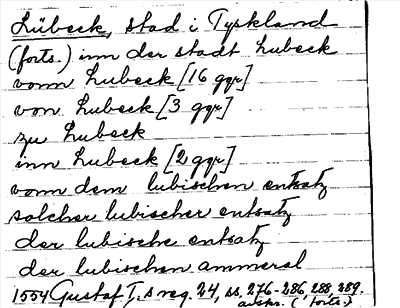 Lübeck, stad i Tyskland
(forts.) inn der stadt Lubeck
vonn Lubeck [16 ggr]
von Lubeck [3 ggr]
zu Lubeck
inn Lubeck [2 ggr]
vonn dem lubischen entsatz
solcher lubischer entsatz
der lubische entsatz
der lubischen ammeral
1554 Gustaf I.s reg. 24, ss. 276-286, 288, 289.
avskr. (forts.)